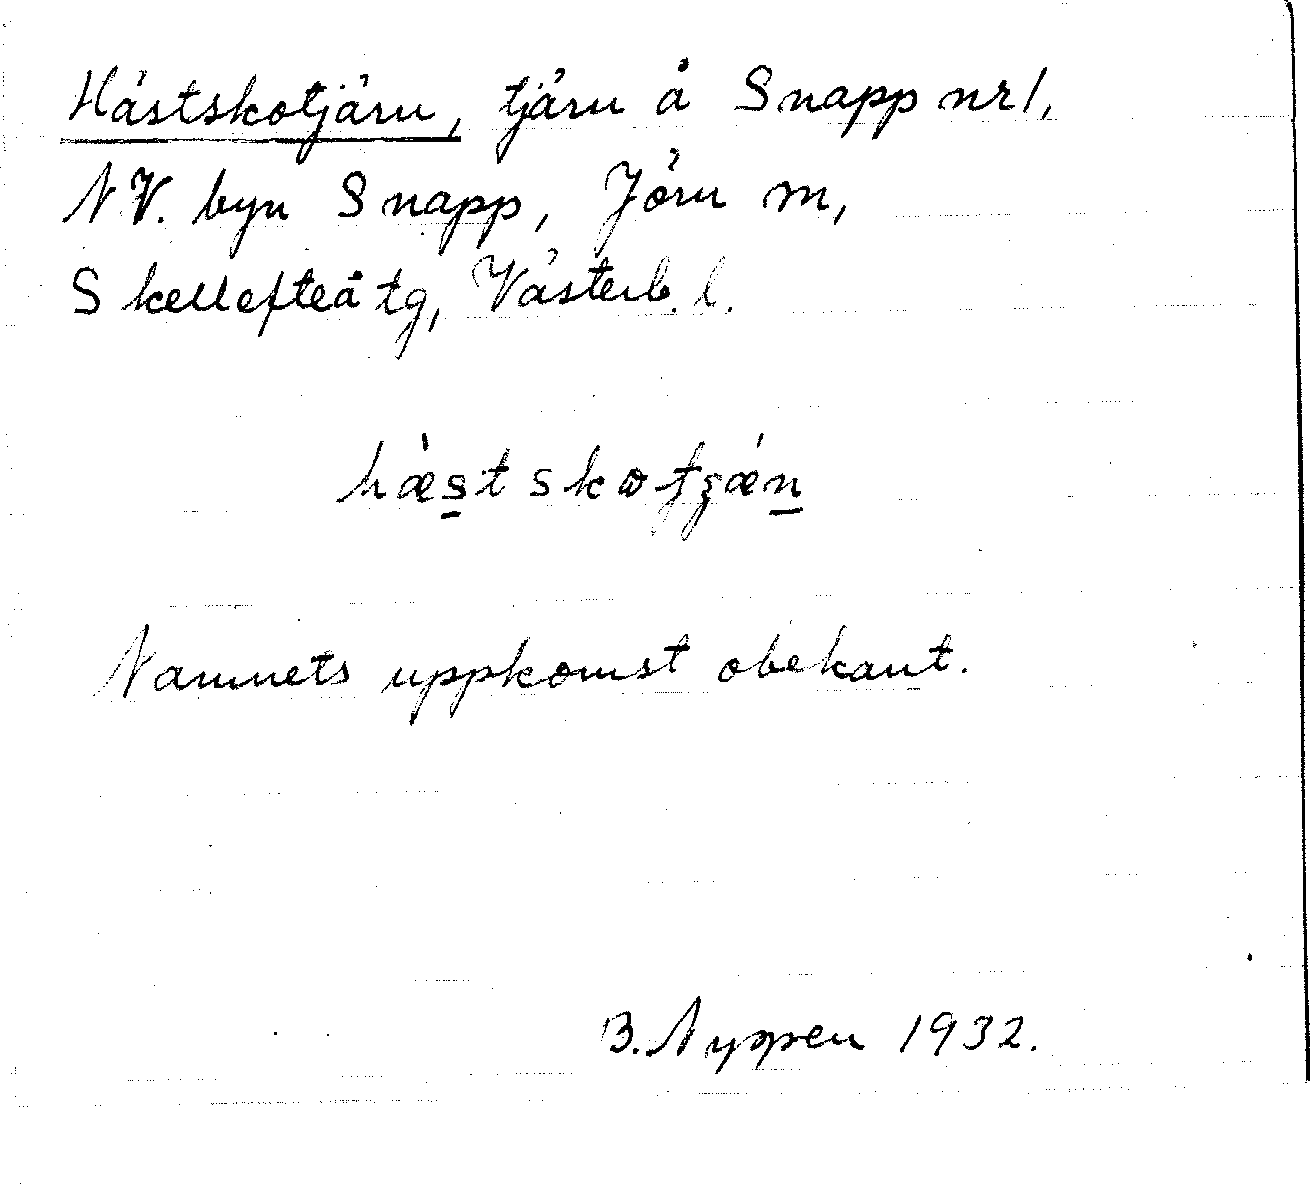 Hästskotjärn, tjärn å Snapp nr 1,
N.V. byn Snapp, Jörn m,
Skellefteå tg, Västerb. l.
Namnets uppkomst obekant.
B. Nyppen 1932.